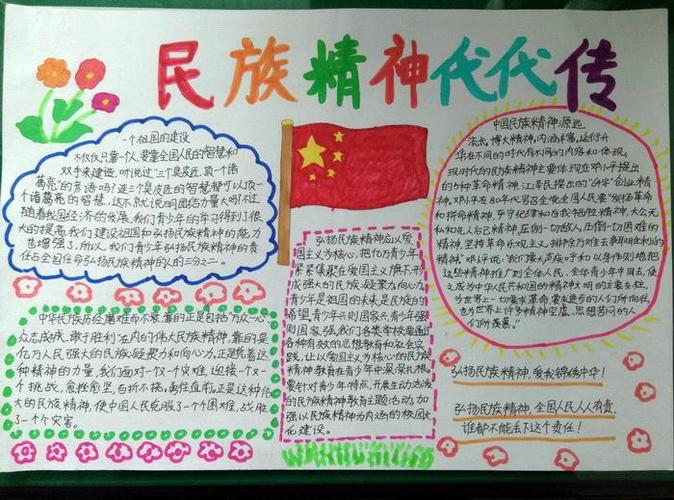 民族精神代代传
一个祖国的建设
不仅仅只靠一个人,要靠全国人民的智慧和
双手来建造,听说过“三个臭皮匠,顶一个诸
葛亮”的常语吗?连三个臭皮匠的智慧都可以顶一
个诸葛亮的智慧,这不就说明团结力量大吗?不过
随着我国经济的发展,我们青少年的学习得到了很
大的提高,我们建设祖国和弘扬民族精神的能力
也增强了,所以,我们青少年弘扬民族精神的责
任占全国任命弘扬民族精神的人的三分之二。
中华民族历经磨难而不衰,靠的正是包括万众一心、
众志成城、敢于胜利在内的伟大民族精神,靠的是
亿万人民强大的民族凝聚力和向心力。正是凭着这
种精神的力量,我们面对一次次灾难,迎接一次
个挑战,愈挫愈坚,百折不挠,勇往直前。正是这种伟
大的民族精神,使中国人民克服了一个个困难,战胜
了一个个灾害。
弘扬民族精神应以爱
国主义为核心,把亿万青少年
紧紧集聚在爱国主义旗下,形
成强大的民族凝聚力和向心力
青少年是祖国的未来,是民族的
希望,青少年兴则国家兴,青少年强
则国家强,我们各类学校要通过
各种有效的思想教育和社会实
践,让以爱国主义为核心的民族
精神教育在青少年中深深扎根。
要针对青少年特点,开展生动活泼
的民族精神教育主题活动,加
强以民族精神为内涵的校园文
化建设。
中国民族精神,源远
流长,博大精深,内涵丰富,延衍升
华在不同的时代有不同的内容和体现。
现时代的民族精神主要体现在邓小平提出
的5种革命精神,江泽民提出的“64字”创业精
神。邓小平在80年代号召全党全国人民要“发扬革命
和拼命精神,严守纪律和自我牺牲精神,大公无
私和先人后己精神,压倒一切敌人,压倒一切困难的
精神,坚持革命乐观主义、排除万难去争取胜利的
精神”邓评说:“我们要大声疾呼和以身作则地把
这些精神推广到全体人民、全体青少年中间去,使
之成为中华人民共和国的精神文明的主要支柱,
为世界上一切要求革命、要求进步的人们所向往,
也为世界上许多精神空虚、思想苦闷的人
们所羡慕。”
弘扬民族精神,爱我锦绣中华!
弘扬民族精神,全国人民人人有责,
谁都不能丢下这个责任!